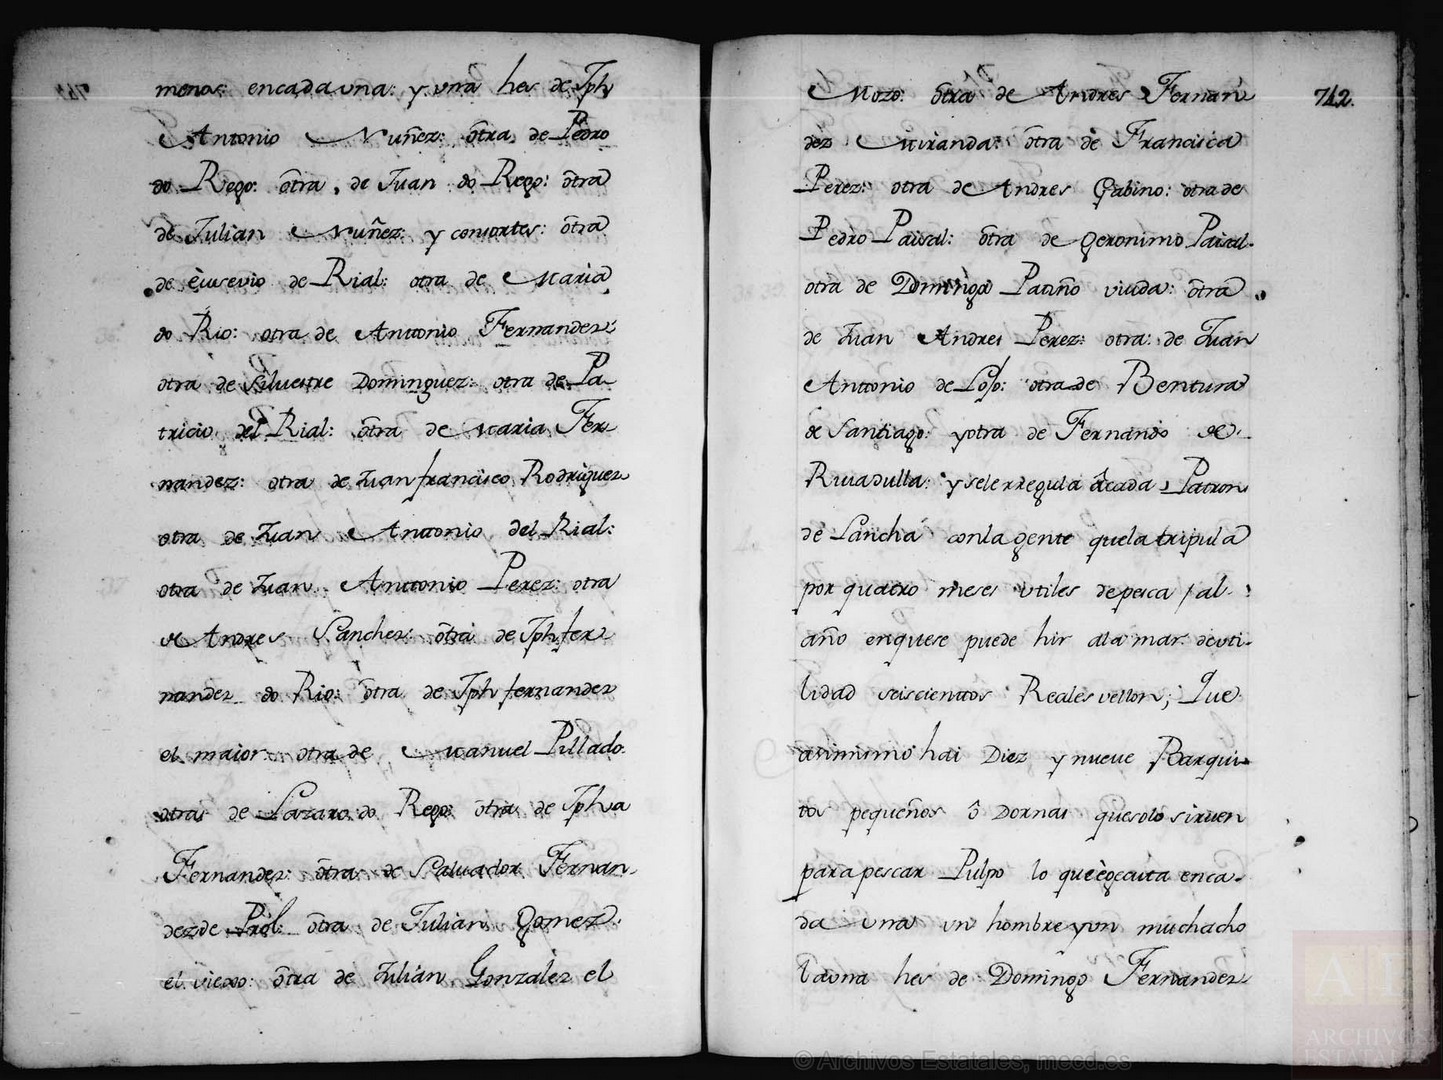 menos: encada vna: y vna hes de Jph
Antonio Nuñez: ôtra, de Pedro
do Rego: ôtra, de Juan do Rego: ôtra
de Julian Nuñez y consortes: ôtra
de êusevio de Rial: otra de Maria
do Rio: otra de Anttonio Fernandez:
otra de Silvestre Dominguez: otra de Pa-
tricio del Rial: ôtra de Maria Fer
nandez: otra de Juan francisco Rodriguez
otra de Juan Anttonio del Rial:
otra de Juan Anttonio Perez: otra
de Andres Sanchez: ôtra de Jph fer
nandez do Rio: ôtra de Jph fernandez
el maior: otra de Manuel Pillado
otra de Lazaro do Rego: otra de Jpha
Fernandez: ôtra de Salvador Fernan-
dez de ôtra de Julian Gomez:
el viexo: ôtra de Julian Gonzalez el
742.
Mozo: ôtra de Andres Fernan
dez Miranda: ôtra de Francisca
Perez: otra de Andres Gabino: otra de
Pedro Paisal: ôtra de Geronimo Paisal-
otra de Dominga Patiño viuda: ôtra
de Juan Andres Perez: otra: de Juan
Anttonio de Poso: otra de Bentura
de Santiago: y otra de Fernando de
Riuadulla: y sele rregula âcada Patron
de Lancha conla gente quela tripula
por quatro meses vtiles de pesca / al
año enquese puede hir ala mar de vti-
lidad seiscienttos Reales vellon; Que
asimismo hai Diez y nueve Barqui-
tos pequeños ô Dornas quesolo siruen
para pescar Pulpo lo que êgecuta enca-
da una vn hombre y vn muchacho
la vna hes de Domingo Fernandez
© Archivos Estatales, mecd.es
ARCHIVOS
ESTATALES